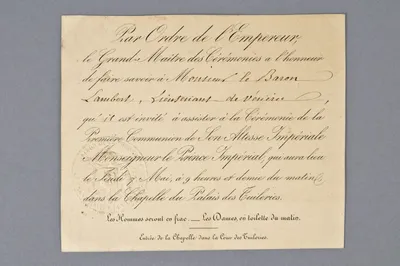 Par Ordre de l'Empereur,
le Grand-Maître des Cérémonies a l'honneur
de faire savoir à Monsieur le Baron
Lambert, Lieutenant de vénerie,
qu'il est invité à assister à la Cérémonie de la
Première Communion de Son Altesse Impériale
Monseigneur le Prince Impérial, qui aura lieu
le Jeudi 7 Mai, à 9 heures et demie du matin
dans la Chapelle du Palais des Tuileries.
Les Hommes seront en frac. — Les Dames, en toilette du matin.
Entrée de la Chapelle dans la Cour des Tuileries.